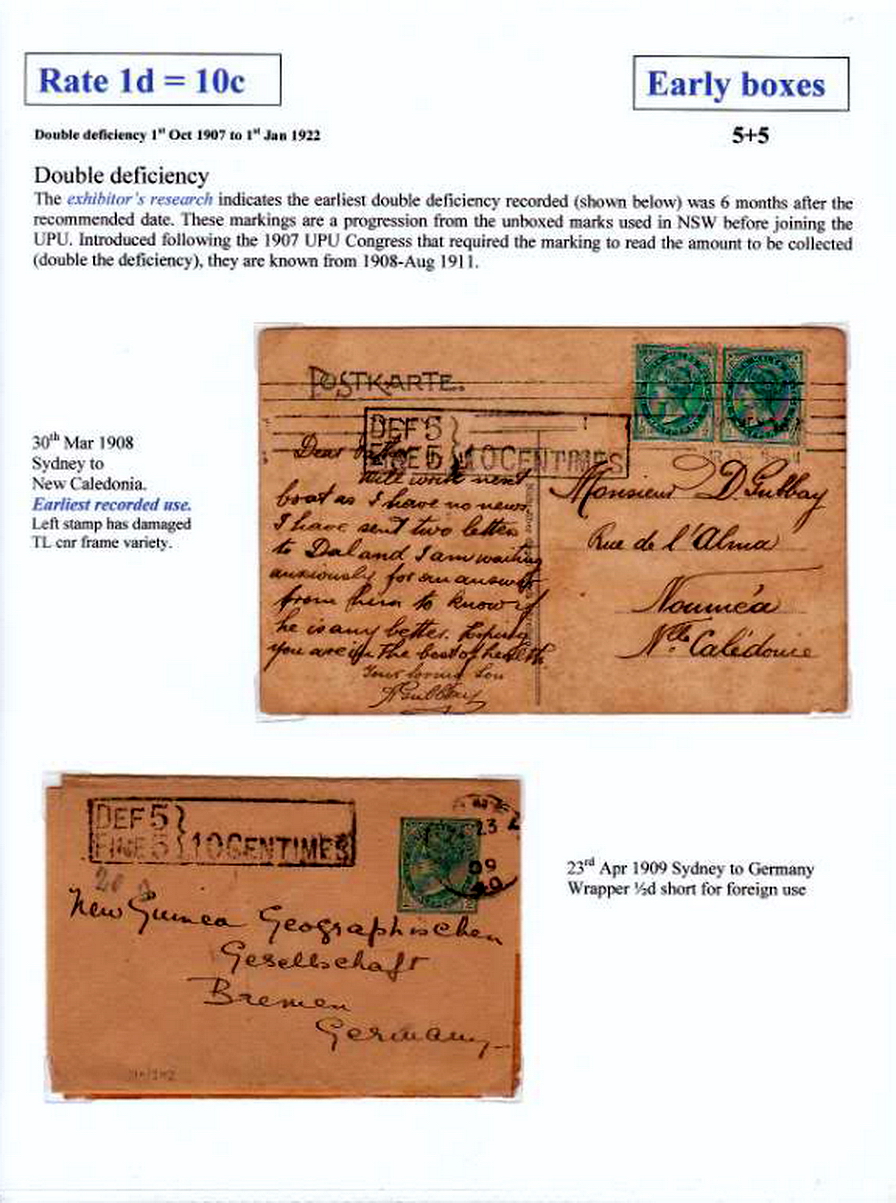 Rate 1d = 10c
Early boxes
Double deficiency 1st Oct 1907 to 1st Jan 1922
5+5
Double deficiency
The exhibitor's research indicates the earliest double deficiency recorded (shown below) was 6 months after the
recommended date. These markings are a progression from the unboxed marks used in NSW before joining the
UPU. Introduced following the 1907 UPU Congress that required the marking to read the amount to be collected
(double the deficiency), they are known from 1908-Aug 1911.
30th Mar 1908
Sydney to
New Caledonia.
Earliest recorded use.
Left stamp has damaged
TL cnr frame variety.
POSTKARTE.
DEF 5
FINE 5 } 10 CENTIMES
Dear
Will write next
boat as I have no news
I have sent two letters
to Dal and I am waiting
anxiously for an answer
from him to know if
he is any better. Hoping
you are in the best of health
Your loving Son
Monsieur D. Gubbay
Rue de l'Alma
Nouméa
Nlle Calédonie
DEF 5
FINE 5 } 10 CENTIMES
23
09
New Guinea Geographischen
Gesellschaft
Bremen
Germany
23rd Apr 1909 Sydney to Germany
Wrapper ½d short for foreign use